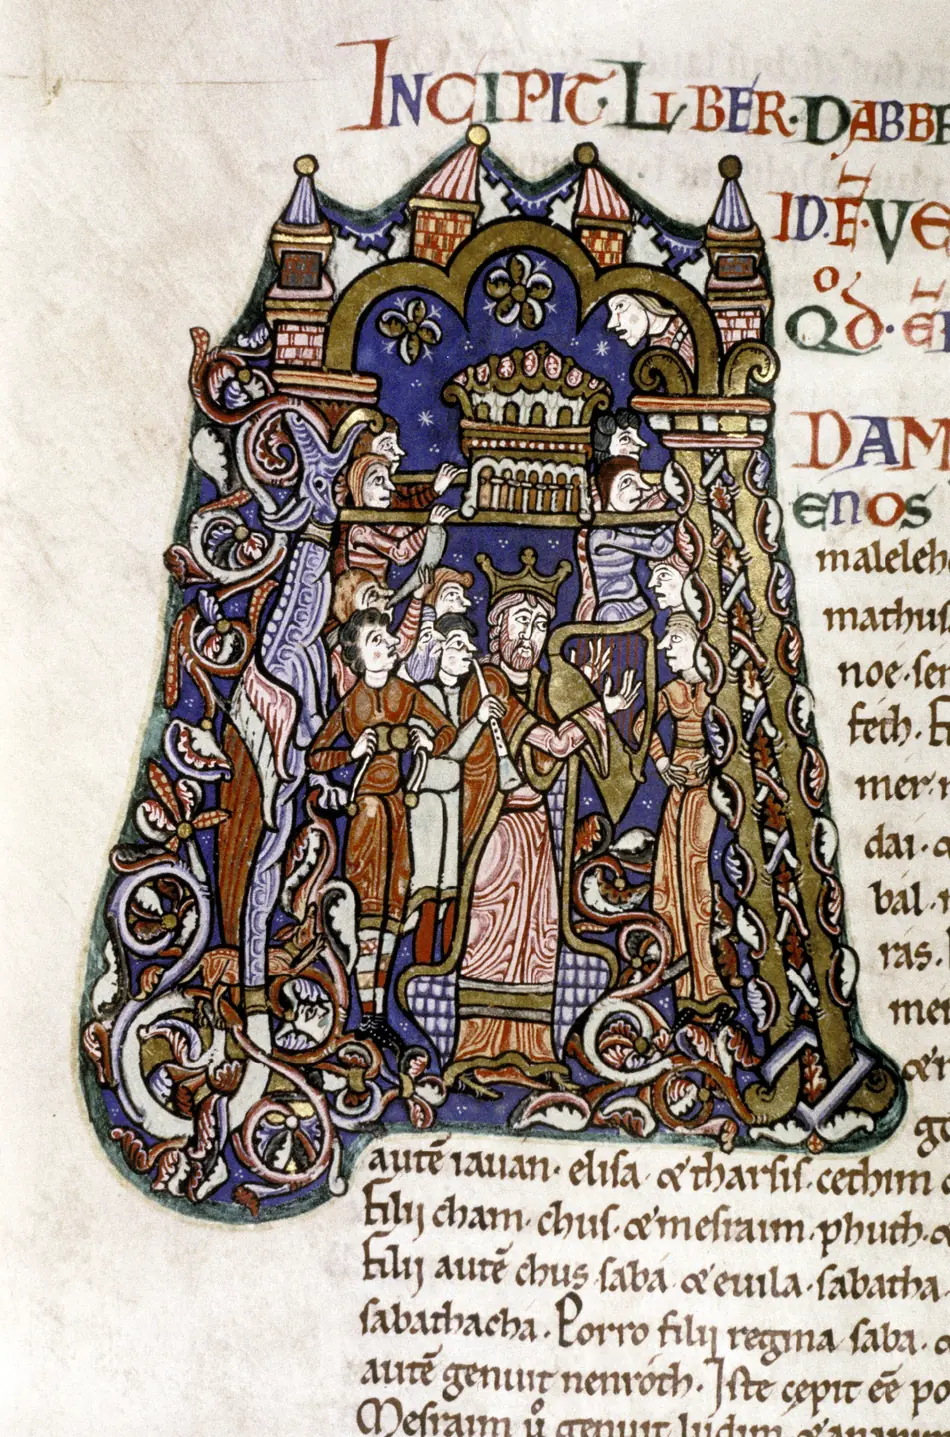 INCIPIT·LIBER·DABBE
ID·Ē·VE
Qđ·Ē
DAM
ENOS
maleleh
mathus
noe·sem
feth·
mer·
dai·
bal·
ras·
mes
&
go
autē iauan· elisa &tharsis·cethim
Filij cham· chus·&mesraim·phuth·&
Filij autē chus saba &euila·sabatha·
sabathacha·Porro filij regma saba·
autē genuit nenroth·Iste cępit eē po
Mesraim ů genuit ludim·&anamim